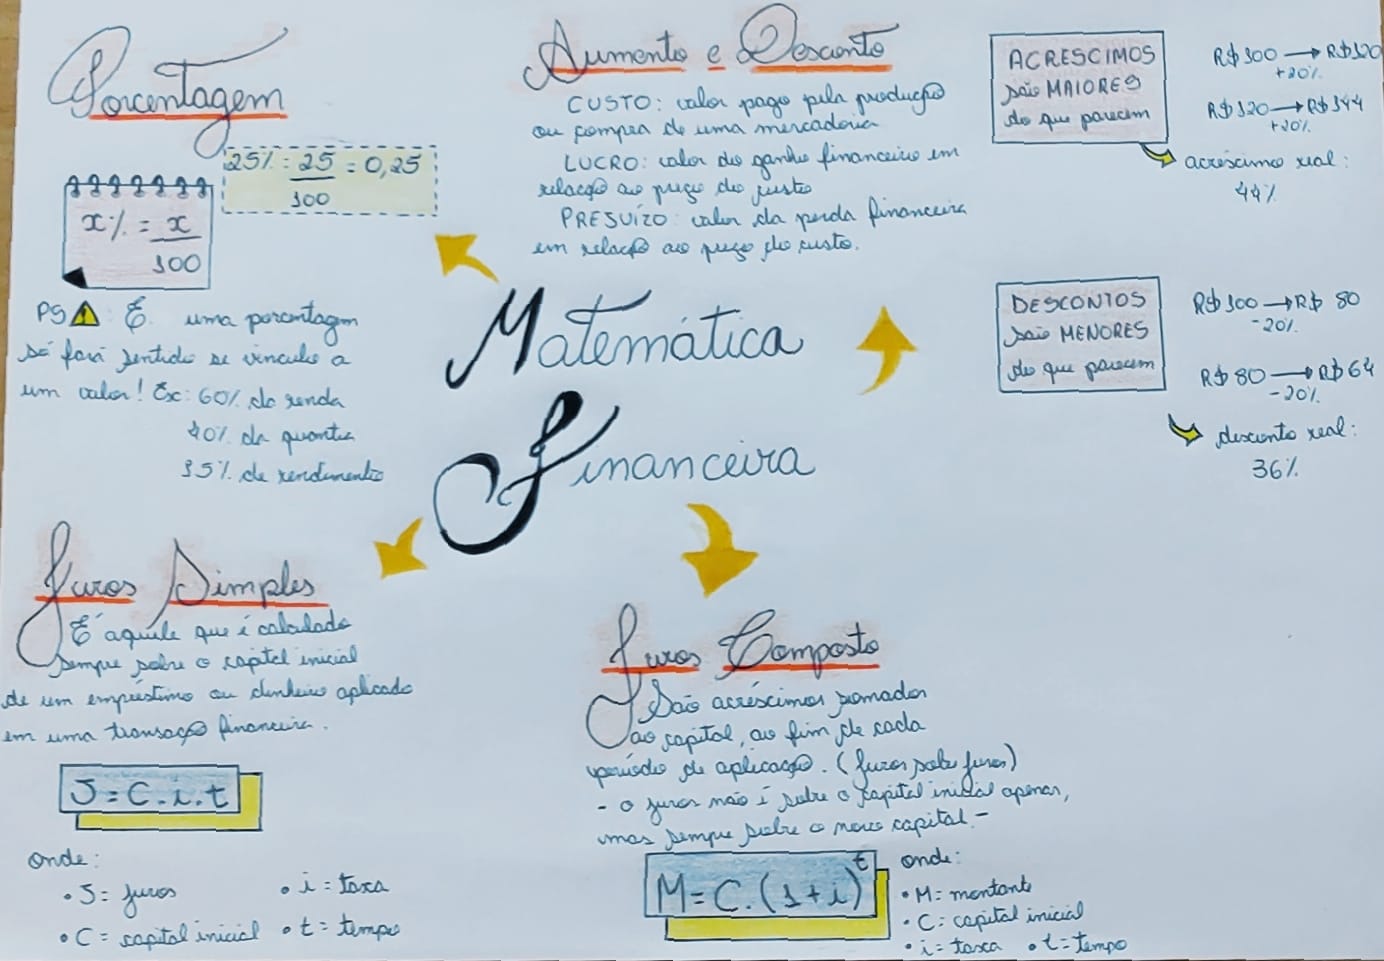 Porcentagem
25% = 25 = 0,25
100
x% = x
100
PS ! : É uma porcentagem
só fará sentido se vinculo a
um valor! Ex: 60% da renda
40% da quantia
15% de rendimento
Aumento e Desconto
CUSTO: valor pago pela produção
ou compra de uma mercadoria
LUCRO: valor do ganho financeiro em
relação ao preço do custo
PRESUÍZO: valor da perda financeira
em relação ao preço do custo.
ACRESCIMOS
são MAIORES
do que parecem
R$ 100 → R$ 120
+20%
R$ 120 → R$ 144
+20%
acréscimo real:
44%
DESCONTOS
são MENORES
do que parecem
R$ 100 → R$ 80
-20%
R$ 80 → R$ 64
-20%
desconto real:
36%
Matemática
Financeira
Juros Simples
É aquele que é calculado
sempre sobre o capital inicial
de um empréstimo ou dinheiro aplicado
em uma transação financeira.
J = C.i.t
onde:
• J = juros
• i = taxa
• C = capital inicial
• t = tempo
Juros Composto
São acréscimos somados
ao capital, ao fim de cada
período de aplicação. (juros sobre juros)
- o juros não é sobre o capital inicial apenas,
mas sempre sobre o novo capital -
M = C.(1+i)^t
onde:
• M = montante
• C = capital inicial
• i = taxa • t = tempo